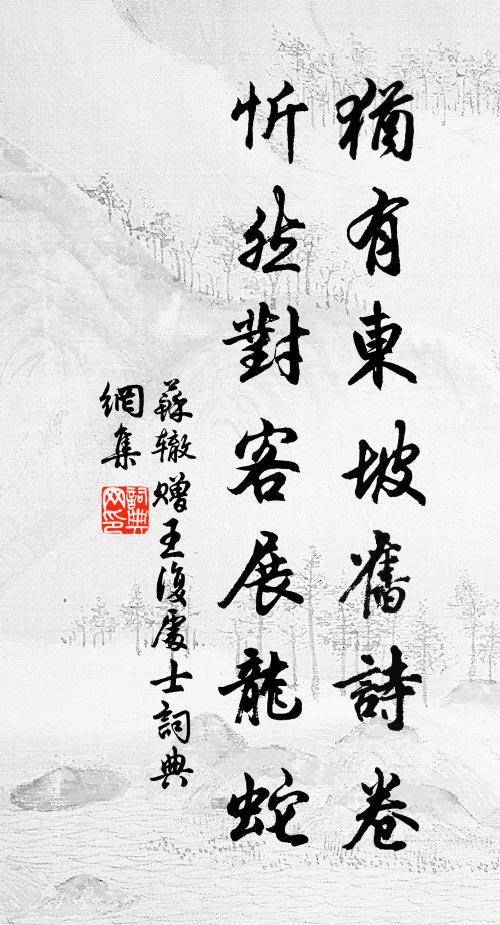 猶有東坡舊詩卷
忻然對客展龍蛇
蘇轍贈王復處士詞典
網集
詞典網印